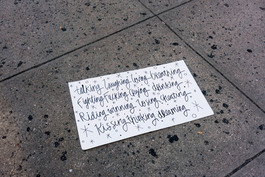 talking, laughing, loving, breathing,
Fighting, Fucking, Crying, Drinking,
Riding, winning, losing, cheating,
Kissing, thinking, dreaming